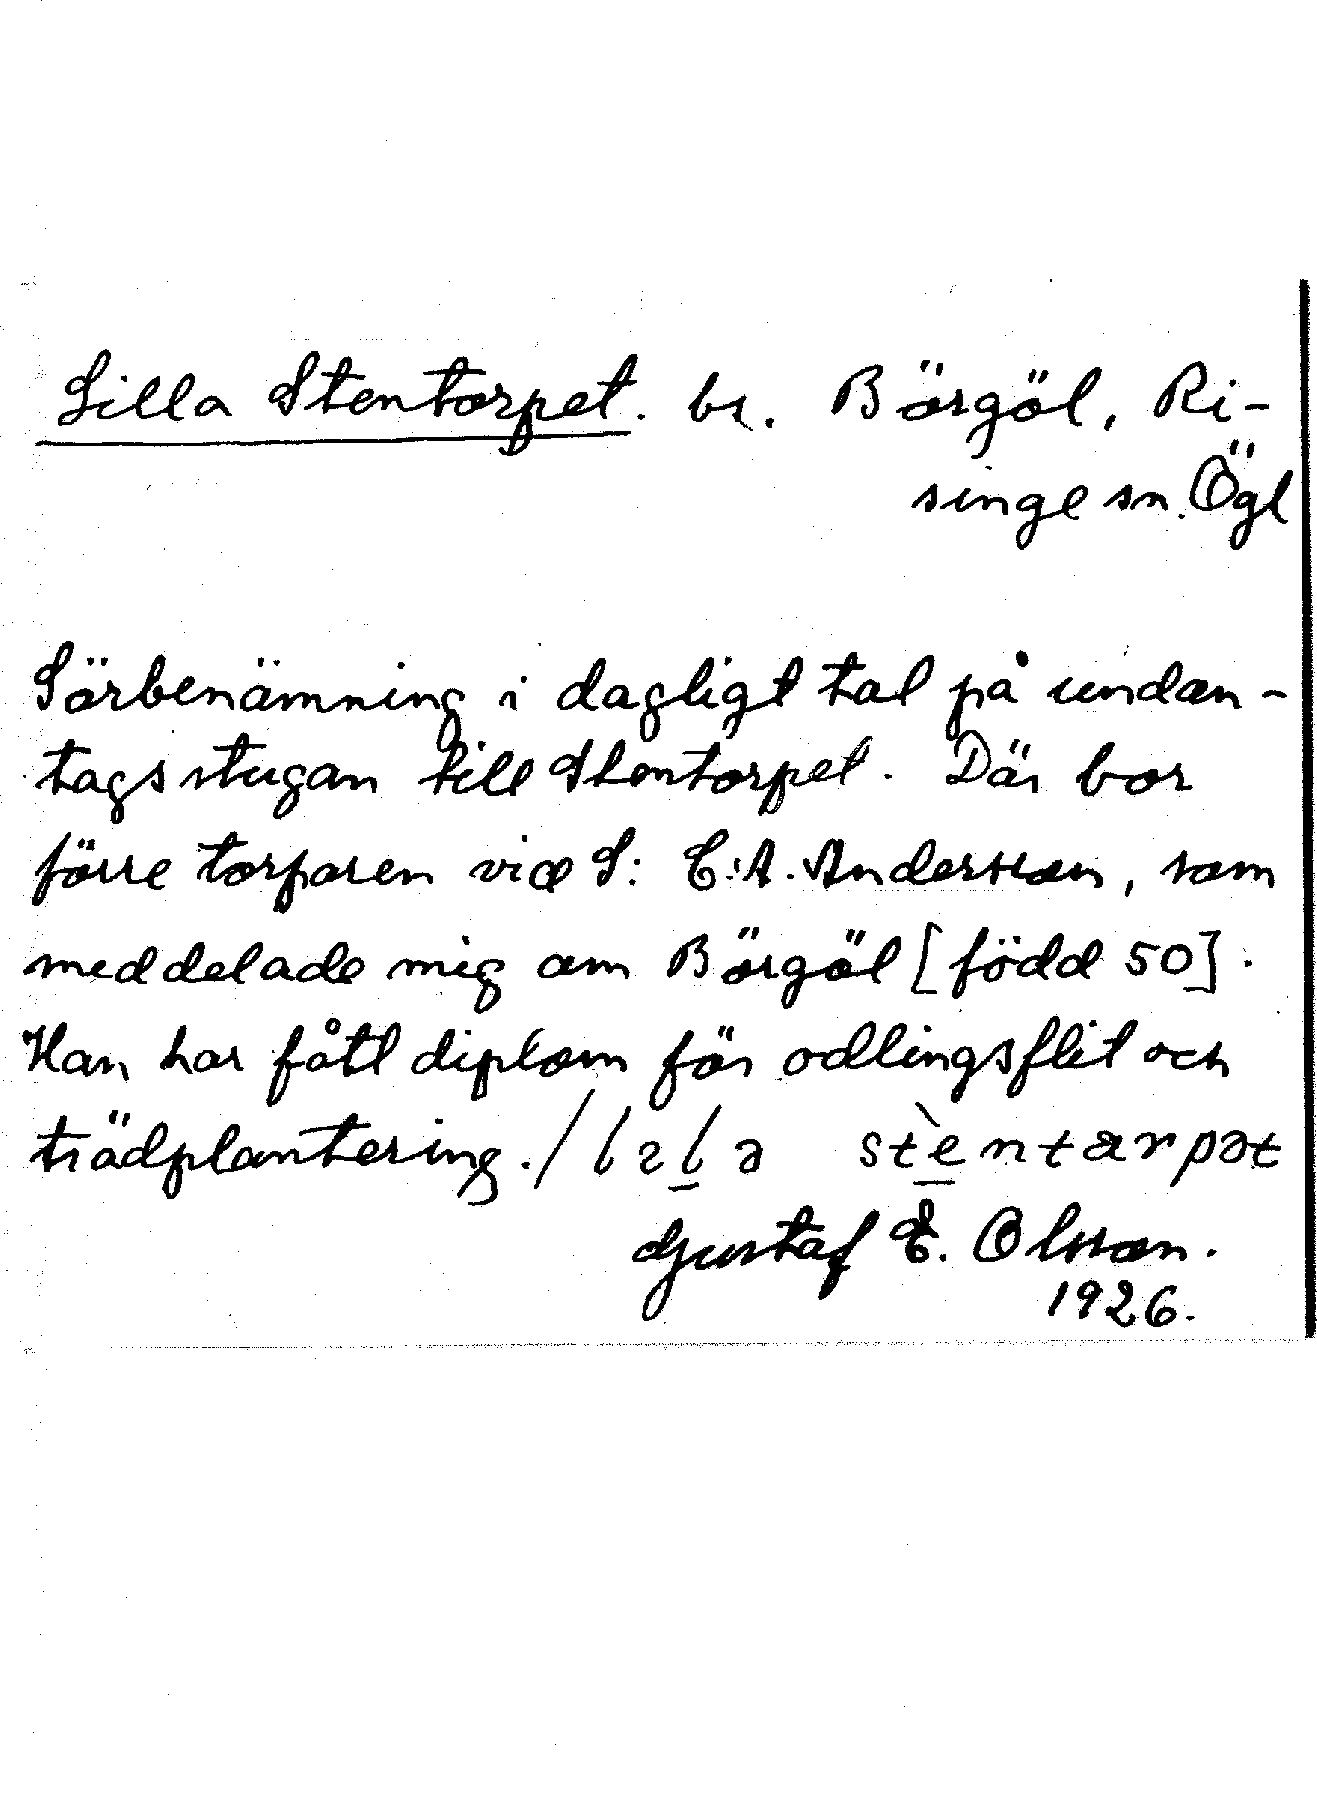 Lilla Stentorpet. br. Börgöl, Ri-
singe sn. Ögl
Särbenämning i dagligt tal på undan-
tagsstugan till Stentorpet. Där bor
förre torparen vid S: C.A. Andersson, som
meddelade mig om Börgöl [född 50].
Han har fått diplom för odlingsflit och
trädplantering. /
Gustaf E. Olsson.
1926.